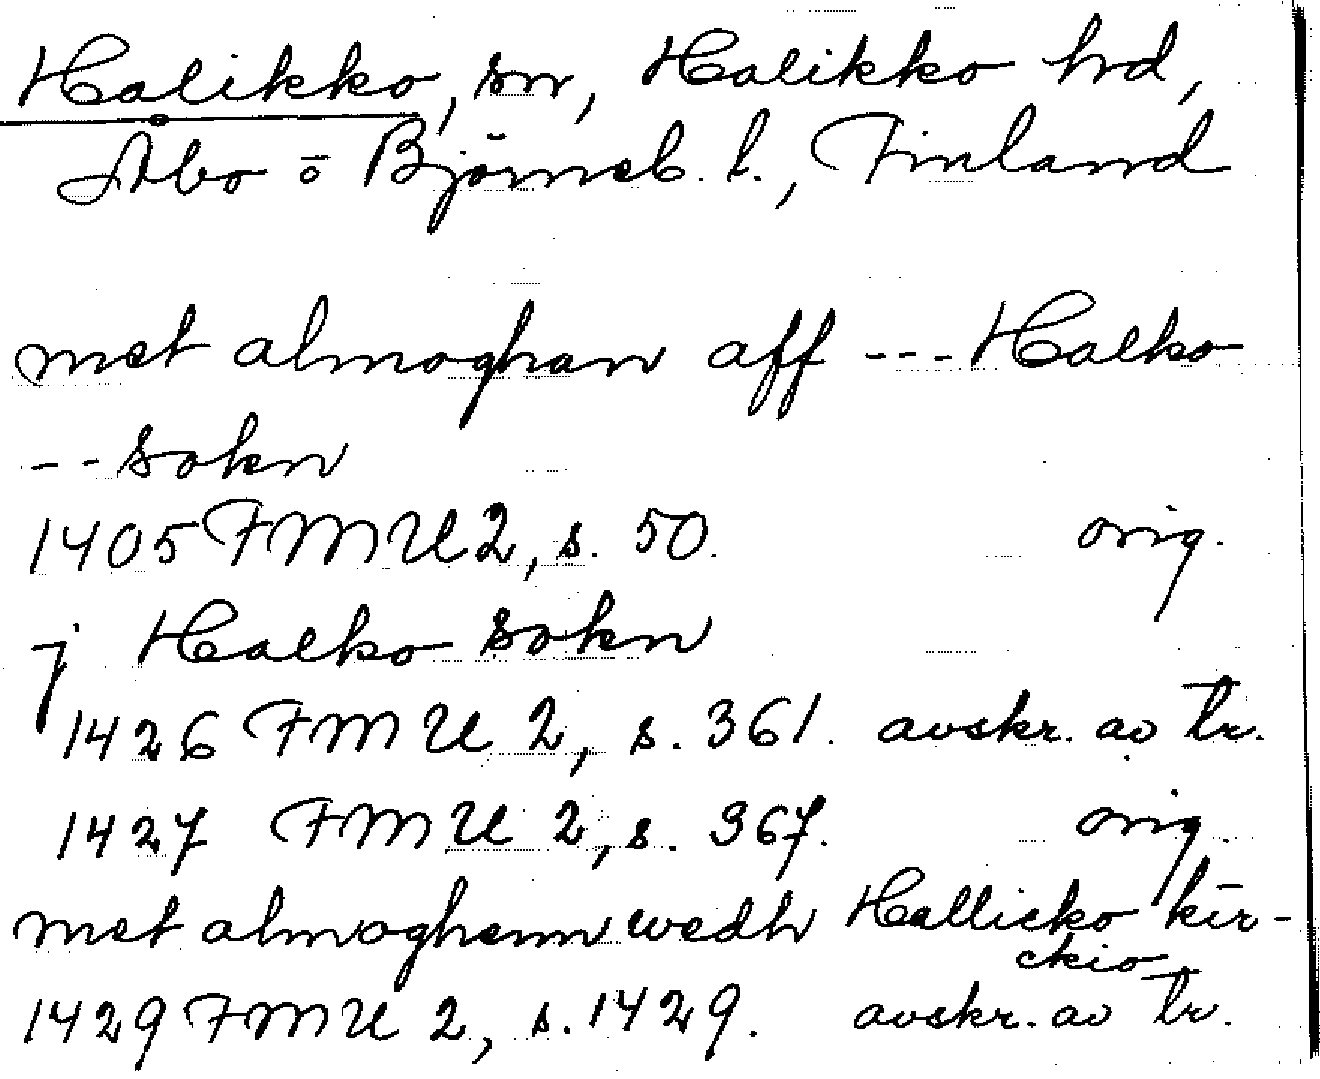 Halikko, sn, Halikko hd,
Åbo o Björneb. l., Finland
met almoghan aff --- Halko
-- sokn
1405 FMU 2, s. 50. orig.
j Halko sokn
1426 FMU 2, s. 361. avskr. av tr.
1427 FMU 2, s. 367. orig.
met almoghenn wedh Hallicko kir-
ckio
1429 FMU 2, s. 1429. avskr. av tr.